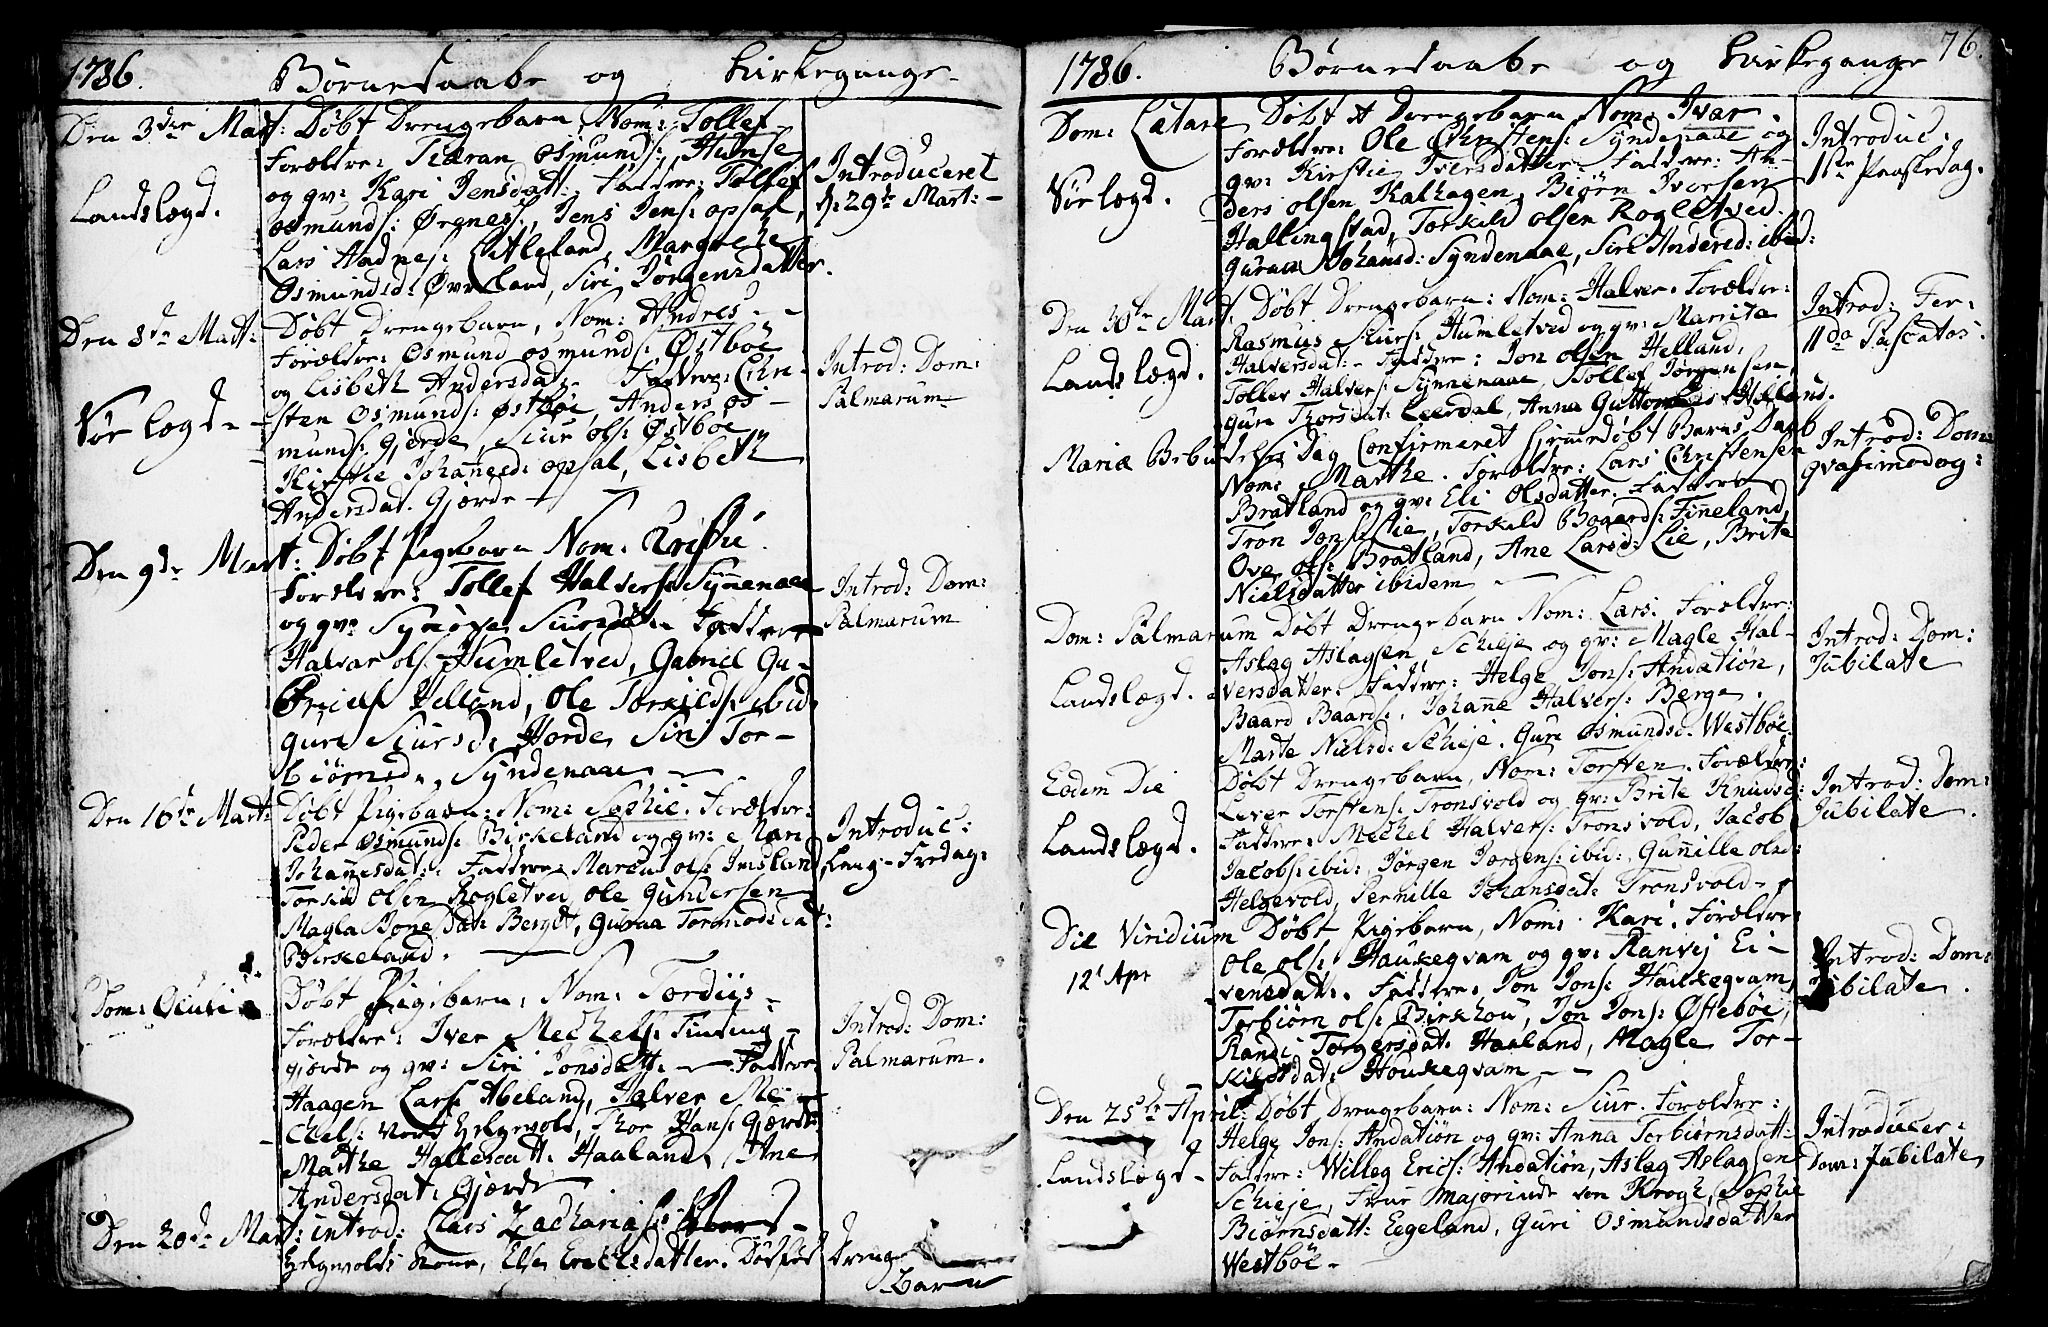 1786. Børnedaabe og Kirkegange
Den 3die Mart: Døbt Drengebarn, Nom: Tollef
Forældre: Osmunds:
Landslægd. og qv: Kari Jensdatt: Faddere: Tollef
Osmunds: Ørenes, Jens Jens: Opsal,
Lars Aadnes: Litleland, Margrethe
Osmundsd: Øvreland, Siri Jørgensdatter.
Introduceret
d: 29de Mart:
Den 8de Mart: Døbt Drengebarn, Nom: Andres
Forældre: Osmund Osmunds: Østbøe
og Lisbeth Andersdat: Faddere: Chri-
Vør lægd sten Osmunds: Østbøe, Anders Os-
munds: Gjerde, Siur Ols: Østbøe
Kirstie Johannesd: Opsal, Lisbeth
Andersdat. Gjærde
Introd: Dom:
Palmarum
Den 9de Mart: Døbt Pigebarn Nom:
Forældre: Tollef Halvers: Synnenaae
og qv: Siursdat: Faddere
Halvar Ols: Humletved, Gabriel Ga-
briels: Helland, Ole Torkilds: ibid.
Guri Siursd: Horde, Siri Tor-
biørnsd: Syndenaae
Introd: Dom:
Palmarum
Den 16de Mart: Døbt Pigebarn: Nom: Sophie. Forældre:
Peder Osmunds: Birkeland og qv: Mari
Johannesdat: Faddere: Ols: Imsland,
Torkild Olsen Rogletved, Ole Gundersen
Magla Bergit, Guraa Tormodsdat:
Birkeland.
Introduc:
Lang-Fredag:
Dom: Oculi Døbt Pigebarn: Nom: Tordiis
Forældre: Iver Mechels: Tinding-
gjærde og qv: Siri Jonsdatt: Faddere
Haagen Lars: Abeland, Halver Me-
chels: Helgevold, Thor Hans: Gjærde
Marthe Hallesdatt: Haaland, Ane
Andersdat: Gjærde
Introd: Dom:
Palmarum.
Den 20de Mart: introd: Lars Zacharias:
Helgevolds Kone, Else Erichsdatter. Dødfød Drenge
Barn
1786. Børnedaabe og Kirkegange 76.
Dom: Lætare Døbt et Drengebarn Nom: Ivar.
Forældre: Ole Christens: Syndenaae og
Vør lægd. qv: Kirstie Iversdatter. Faddere: An-
ders Olsen Kalhagen, Biørn Iversen
Hallingstad, Torkild Olsen Rogletved.
Guraa Johansd: Syndenaae, Siri Andersd: ibid:
Introduc:
1ste Paaskedag.
Den 30te Mart. Døbt Drengebarn: Nom: Halver. Forældre:
Rasmus Siurs: Humletved og qv: Marrita
Landslægd. Halversdat: Faddere: Jon Olsen Helland,
Tollev Halvers: Synnenaae, Tollef Jørgensen,
Guru Thorsdat: Leerdal, Anna Helland.
Introd: Fer:
11da Pascatos.
Mariæ Bebudelses Dag Confirmeret hiemmedøbt Barns Daab
Nom: Marthe. Forældre: Lars Christensen
Bratland og qv: Eli Olsdatter. Faddere
Tron Jons: Lie, Torkild Baards: Finneland,
Ove Ols: Bratland, Ane Larsd: Lie, Brite
Nielsdatter ibidem
Introd: Dom:
qvasimodog:
Dom: Palmarum Døbt Drengebarn Nom: Lars: Forældre:
Aslag Aslagsen Schieje og qv: Magle Hal-
Landslægd. versdatter. Faddere: Helge Jons: Andatiøn,
Baard Baards:, Johanne Halvers: Berge.
Marte Nielsd: Schieje. Guri Osmundsd. Westbøe.
Introd: Dom:
Jubilate
Eodem Die Døbt Drengebarn, Nom: Torsten. Forældre:
Lever Torstens: Tronsvold og qv: Brite Knudsd:
Landslægd. Faddere: Mechel Halvers: Tronsvold, Jacob
Jacobs: ibid:, Jørgen Jørgens: ibid:, Gunnille Olsd:
Helgevold, Pernille Johansdat: Tronsvold
Introd: Dom:
Jubilate.
Die Viridium Døbt Pigebarn, Nom: Kari. Forældre:
12t Apr Ole Ols: Haukeqvam og qv: Ranvej Ei-
vensdat:. Faddere: Jon Jons: Haukeqvam,
Torbiørn Ols: Birkhou, Jon Jons: Østebøe,
Randi Torgersdat: Haaland, Magle Tor-
kildsdat: Houkeqvam
Introd: Dom:
Jubilate.
Den 25de April: Døbt Drengebarn: Nom: Siur. Forældre:
Helge Jons: Andatiøn og qv: Anna Torbiørnsdatt:
Landslægd Faddere: Willeg Erics: Andatiøn, Aslag Aslagsen
Schieje, Frue Majorinde von Krogh, Sophie
Biørnsdatt: Eegeland, Guri Osmundsdatter
Westbøe
Introducer:
Dom: Jubilate